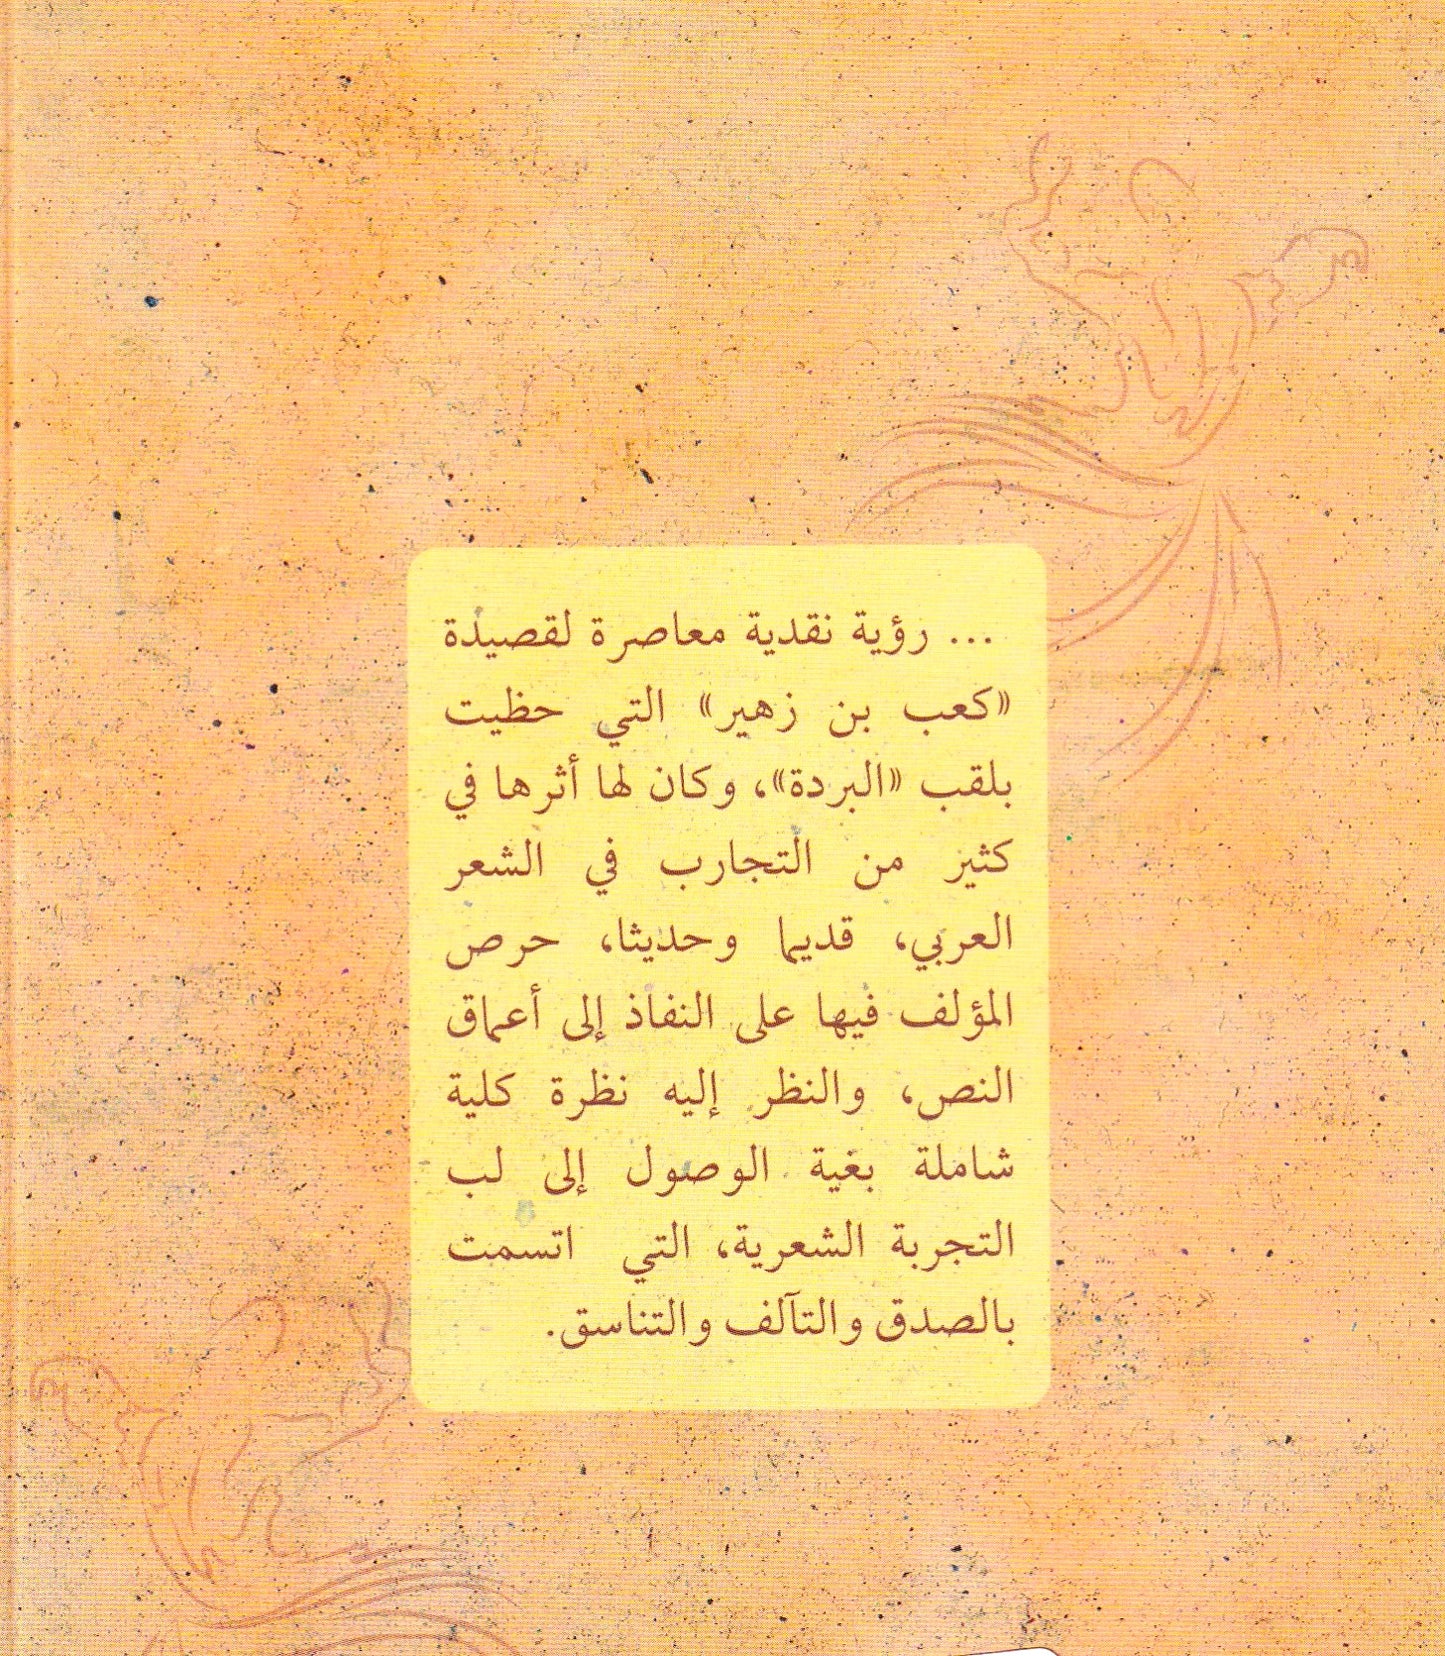 ... رؤية نقدية معاصرة لقصيدة
«كعب بن زهير» التي حظيت
بلقب «البردة»، وكان لها أثرها في
كثير من التجارب في الشعر
العربي، قديما وحديثا، حرص
المؤلف فيها على النفاذ إلى أعماق
النص، والنظر إليه نظرة كلية
شاملة بغية الوصول إلى لب
التجربة الشعرية، التي اتسمت
بالصدق والتآلف والتناسق.